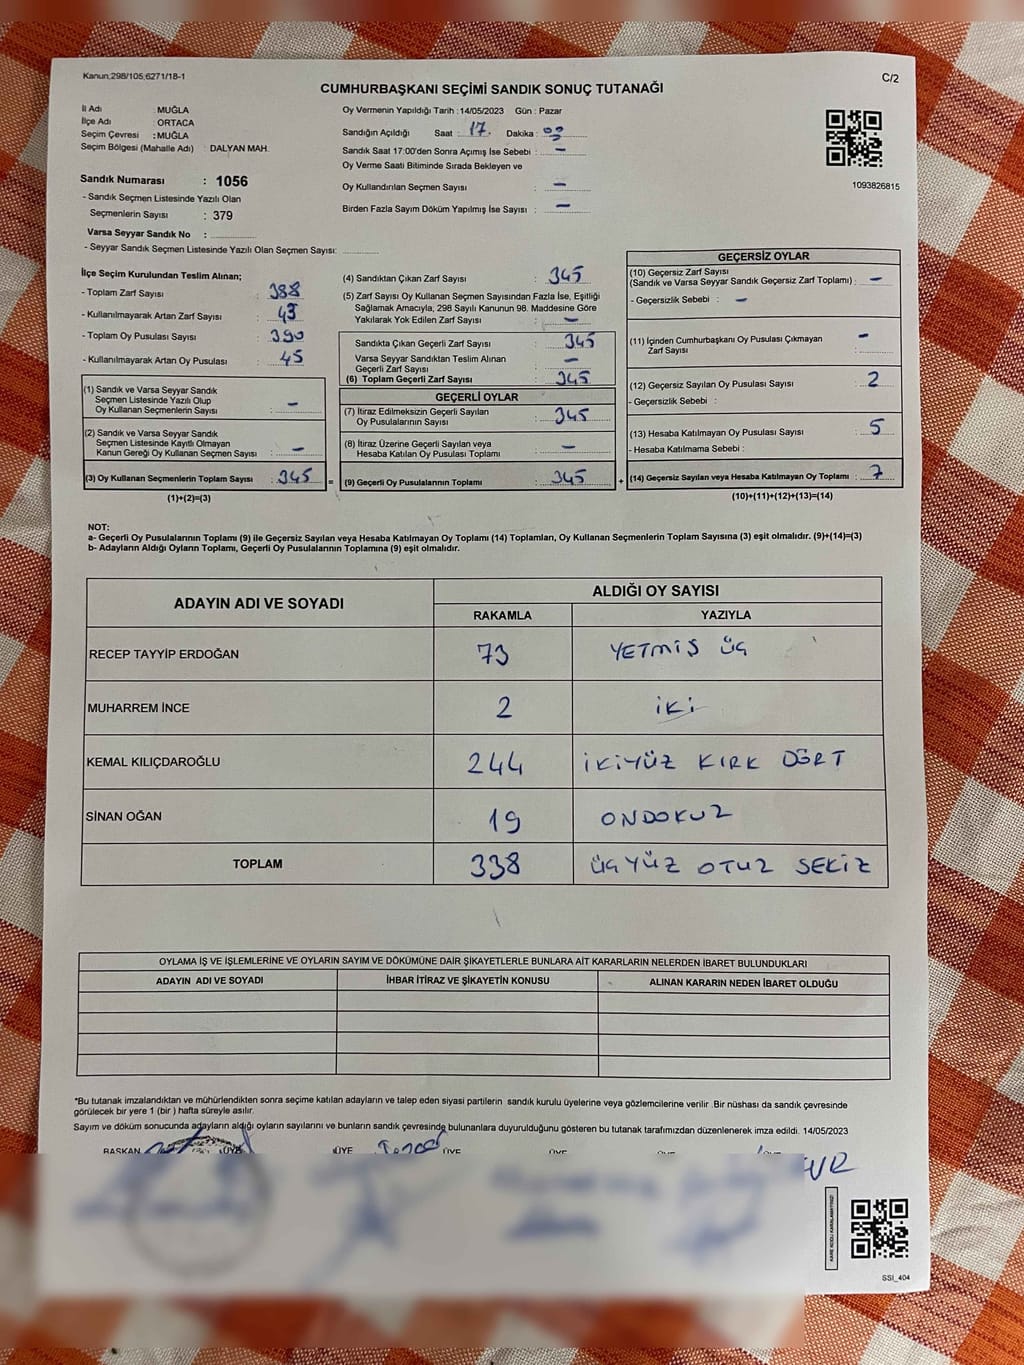 Kanun;298/105;6271/18-1
C/2
CUMHURBAŞKANI SEÇİMİ SANDIK SONUÇ TUTANAĞI
İl Adı MUĞLA
İlçe Adı ORTACA
Seçim Çevresi : MUĞLA
Seçim Bölgesi (Mahalle Adı) : DALYAN MAH.
Sandık Numarası : 1056
- Sandık Seçmen Listesinde Yazılı Olan
Seçmenlerin Sayısı : 379
Varsa Seyyar Sandık No :
- Seyyar Sandık Seçmen Listesinde Yazılı Olan Seçmen Sayısı:
Oy Vermenin Yapıldığı Tarih : 14/05/2023 Gün : Pazar
Sandığın Açıldığı Saat : 17. Dakika :
Sandık Saat 17:00'den Sonra Açımış İse Sebebi : –
Oy Verme Saati Bitiminde Sırada Bekleyen ve
Oy Kullandırılan Seçmen Sayısı : –
Birden Fazla Sayım Döküm Yapılmış İse Sayısı : –
1093826815
İlçe Seçim Kurulundan Teslim Alınan;
- Toplam Zarf Sayısı : 388
- Kullanılmayarak Artan Zarf Sayısı : 43
- Toplam Oy Pusulası Sayısı : 390
- Kullanılmayarak Artan Oy Pusulası : 45
(1) Sandık ve Varsa Seyyar Sandık
Seçmen Listesinde Yazılı Olup
Oy Kullanan Seçmenlerin Sayısı : –
(2) Sandık ve Varsa Seyyar Sandık
Seçmen Listesinde Kayıtlı Olmayan
Kanun Gereği Oy Kullanan Seçmen Sayısı : –
(3) Oy Kullanan Seçmenlerin Toplam Sayısı : 345 =
(1)+(2)=(3)
(4) Sandıktan Çıkan Zarf Sayısı : 345
(5) Zarf Sayısı Oy Kullanan Seçmen Sayısından Fazla İse, Eşitliği
Sağlamak Amacıyla, 298 Sayılı Kanunun 98. Maddesine Göre
Yakılarak Yok Edilen Zarf Sayısı : –
Sandıkta Çıkan Geçerli Zarf Sayısı : 345
Varsa Seyyar Sandıktan Teslim Alınan
Geçerli Zarf Sayısı : –
(6) Toplam Geçerli Zarf Sayısı : 345
GEÇERLİ OYLAR
(7) İtiraz Edilmeksizin Geçerli Sayılan
Oy Pusulalarının Sayısı : 345
(8) İtiraz Üzerine Geçerli Sayılan veya
Hesaba Katılan Oy Pusulası Toplamı : –
(9) Geçerli Oy Pusulalarının Toplamı : 345 +
GEÇERSİZ OYLAR
(10) Geçersiz Zarf Sayısı
(Sandık ve Varsa Seyyar Sandık Geçersiz Zarf Toplamı) : –
- Geçersizlik Sebebi : –
(11) İçinden Cumhurbaşkanı Oy Pusulası Çıkmayan
Zarf Sayısı : –
(12) Geçersiz Sayılan Oy Pusulası Sayısı : 2
- Geçersizlik Sebebi :
(13) Hesaba Katılmayan Oy Pusulası Sayısı : 5
- Hesaba Katılmama Sebebi :
(14) Geçersiz Sayılan veya Hesaba Katılmayan Oy Toplamı : 7
(10)+(11)+(12)+(13)=(14)
NOT:
a- Geçerli Oy Pusulalarının Toplamı (9) ile Geçersiz Sayılan veya Hesaba Katılmayan Oy Toplamı (14) Toplamları, Oy Kullanan Seçmenlerin Toplam Sayısına (3) eşit olmalıdır. (9)+(14)=(3)
b- Adayların Aldığı Oyların Toplamı, Geçerli Oy Pusulalarının Toplamına (9) eşit olmalıdır.
ADAYIN ADI VE SOYADI
ALDIĞI OY SAYISI
RAKAMLA YAZIYLA
RECEP TAYYİP ERDOĞAN 73 YETMİŞ ÜÇ
MUHARREM İNCE 2 İKİ
KEMAL KILIÇDAROĞLU 244 İKİYÜZ KIRK DÖRT
SİNAN OĞAN 19 ONDOKUZ
TOPLAM 338 ÜÇYÜZ OTUZ SEKİZ
OYLAMA İŞ VE İŞLEMLERİNE VE OYLARIN SAYIM VE DÖKÜMÜNE DAİR ŞİKAYETLERLE BUNLARA AİT KARARLARIN NELERDEN İBARET BULUNDUKLARI
ADAYIN ADI VE SOYADI İHBAR İTİRAZ VE ŞİKAYETİN KONUSU ALINAN KARARIN NEDEN İBARET OLDUĞU
*Bu tutanak imzalandıktan ve mühürlendikten sonra seçime katılan adayların ve talep eden siyasi partilerin sandık kurulu üyelerine veya gözlemcilerine verilir .Bir nüshası da sandık çevresinde
görülecek bir yere 1 (bir ) hafta süreyle asılır.
Sayım ve döküm sonucunda adayların aldığı oyların sayılarını ve bunların sandık çevresinde bulunanlara duyurulduğunu gösteren bu tutanak tarafımızdan düzenlenerek imza edildi. 14/05/2023
BAŞKAN ÜYE ÜYE ÜYE ÜYE ÜYE ÜYE
KARE KODU KARALAMAYINIZ!
SSI_404